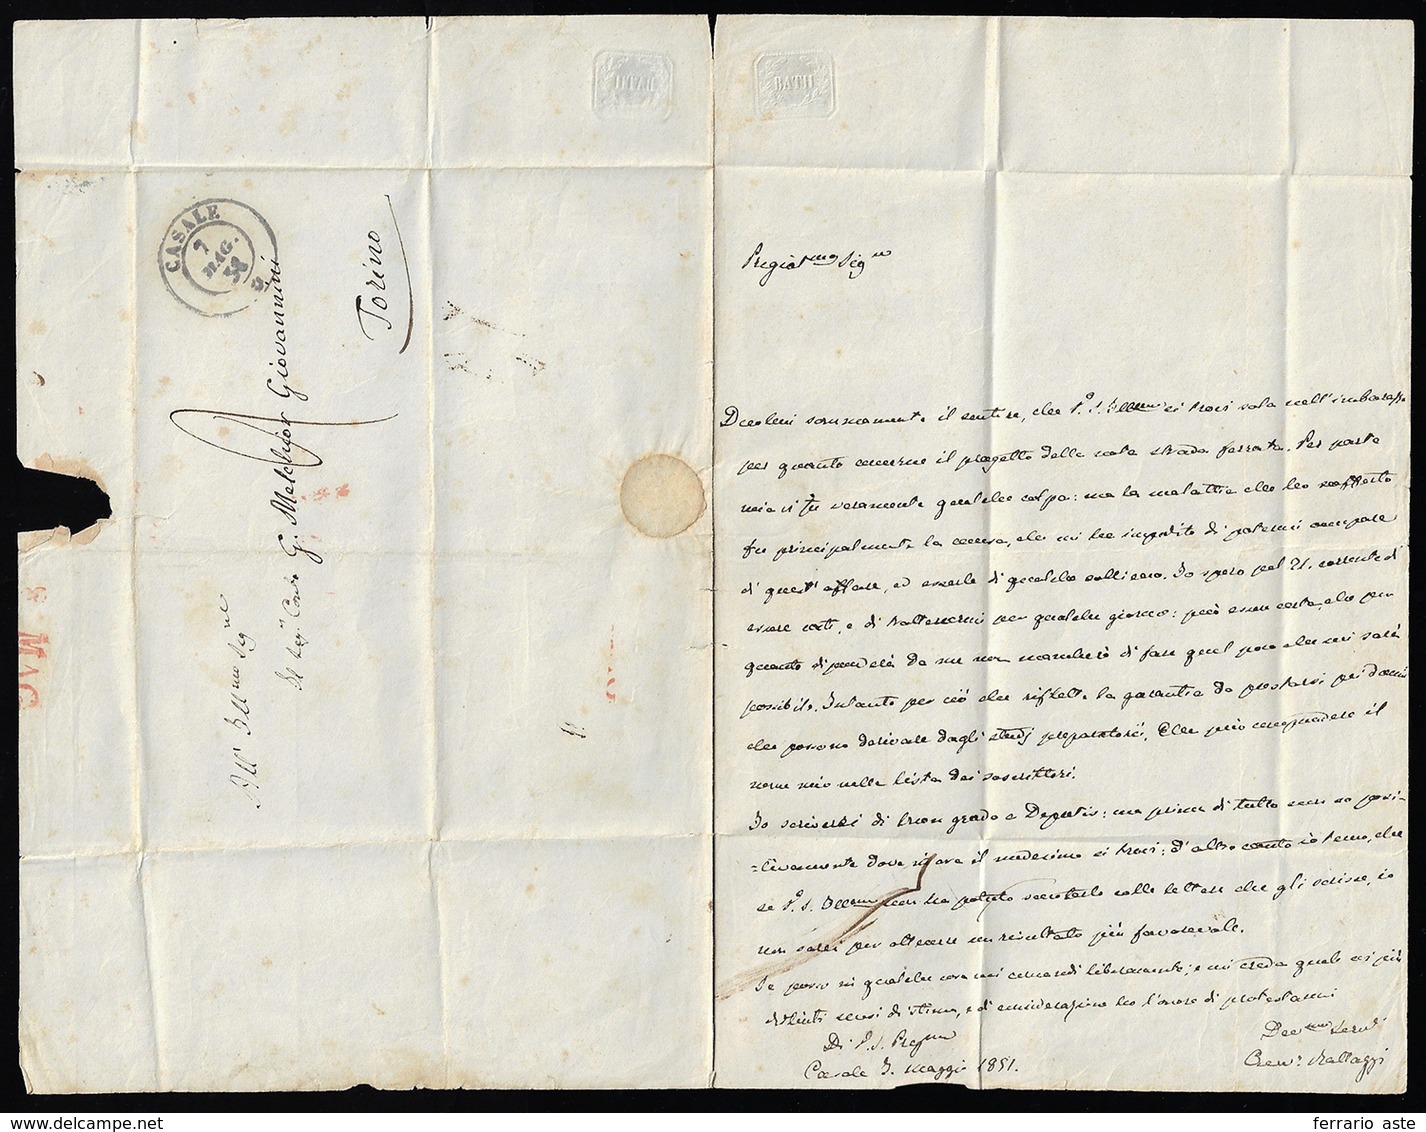 BATH
BATH
CASALE
7
MAG.
Torino
G. Melchior Giovannini
All' Ill.mo Sig.re
Pregiat.mo Sig.re
sommamente il sentire, che V. S. Ill.ma si trovi sola nell'imbarazzo
per quanto concerne il progetto della nota strada ferrata. Per parte
mia vi fu veramente qualche colpa: ma la malattia che ho sofferto
fu principalmente la causa, che mi ha impedito di potermi occupare
di quest'affare, ed esserle di qualche sollievo. Io spero pel 21. corrente di
essere costì, e di trattenermi per qualche giorno: può esser certa, che per
quanto dipenderà da me non mancherò di fare quel poco che mi sarà
possibile. Intanto per ciò che riflette la garantia da prestarsi pei danni
che possono derivare dagli studj preparatorii, Ella può comprendere il
nome mio nella lista dei soscrittori.
Io scriverei di buon grado a Depretis: ma prima di tutto non so posi-
=tivamente dove ora il medesimo si trovi: d'altro canto io temo, che
se V. S. Ill.ma non ha potuto scuoterlo colle lettere che gli scrisse, io
non sarei per ottenere un risultato più favorevole.
Se posso in qualche cosa mi comandi liberamente; e mi creda quale coi più
distinti sensi di stima, e di considerazione ho l'onore di protestarmi
Di V. S. Preg.ma
Casale 3. maggio 1851.
Dev.mo Serv.
Rattazzi
ferrario aste